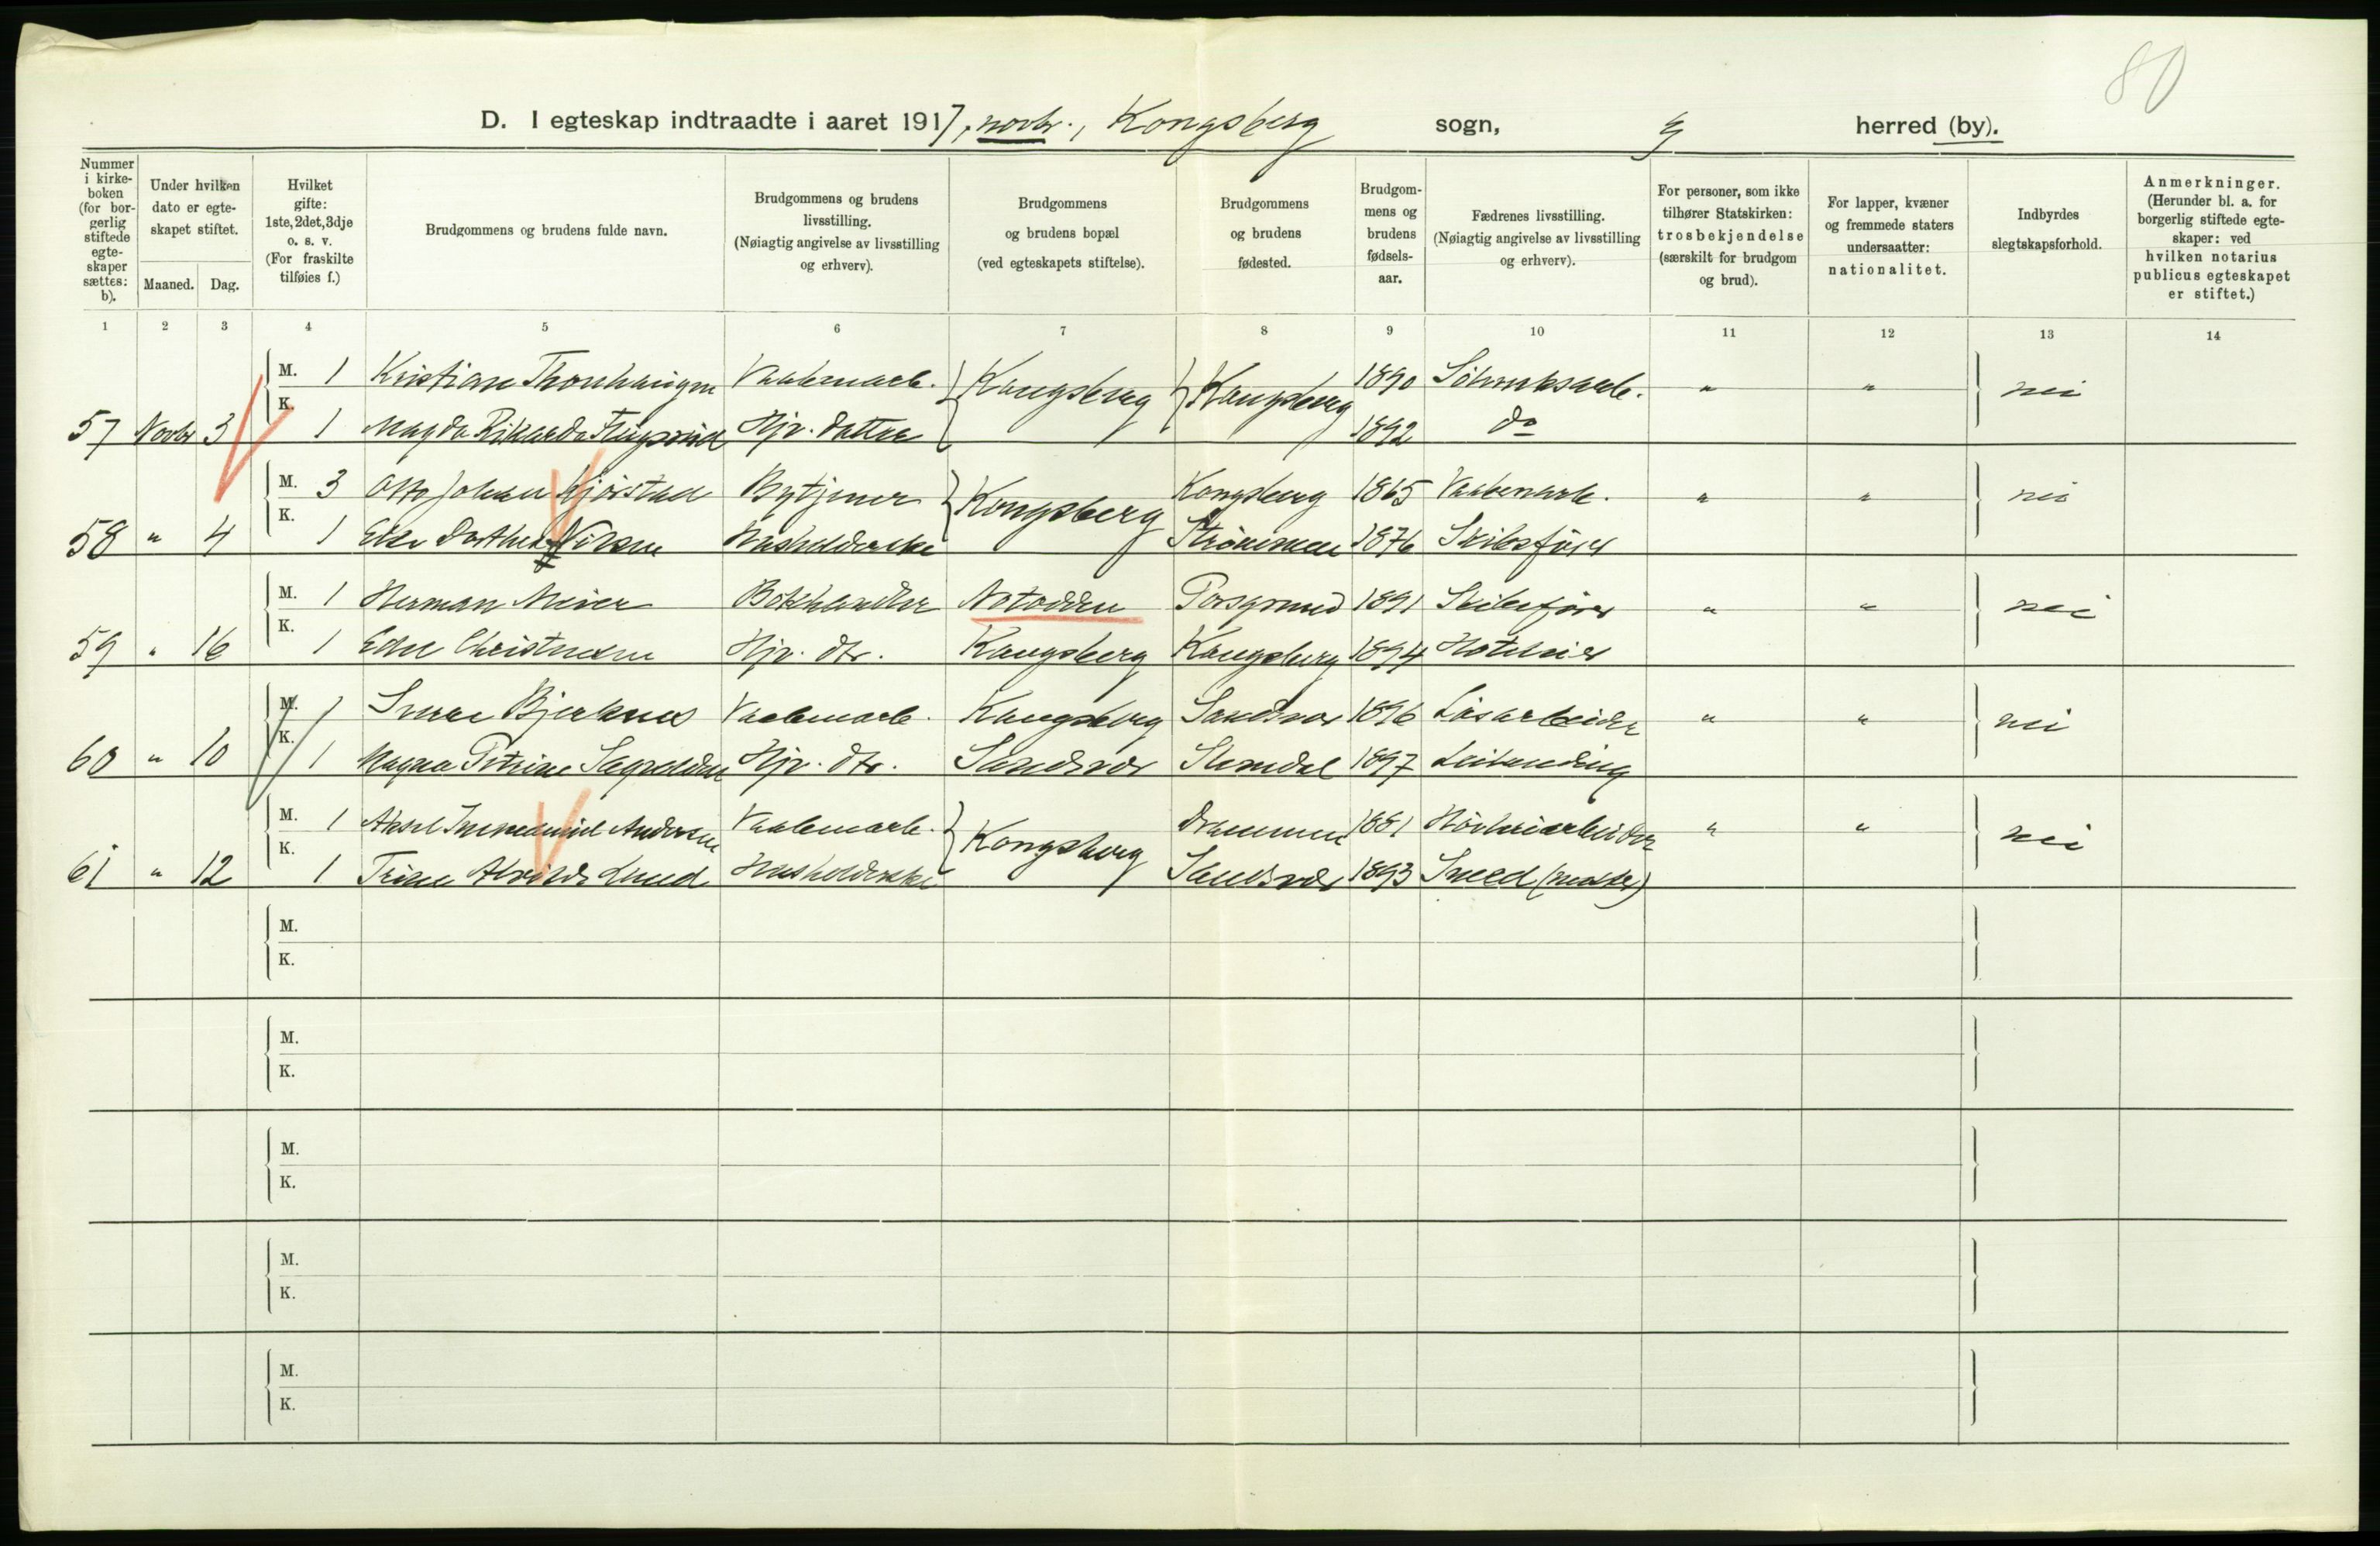 80
D. I egteskap indtraadte i aaret 1917, novbr., Kongsberg sogn, herred (by).
Nummer i kirkeboken (for borgerlig stiftede egteskaper sættes: b).
Under hvilken dato er egteskapet stiftet.
Maaned. Dag.
Hvilket gifte: 1ste, 2det, 3dje o. s. v. (For fraskilte tilføies f.)
Brudgommens og brudens fulde navn.
Brudgommens og brudens livsstilling. (Nøiagtig angivelse av livsstilling og erhverv).
Brudgommens og brudens bopæl (ved egteskapets stiftelse).
Brudgommens og brudens fødested.
Brudgommens og brudens fødselsaar.
Fædrenes livsstilling. (Nøiagtig angivelse av livsstilling og erhverv).
For personer, som ikke tilhører Statskirken: trosbekjendelse (særskilt for brudgom og brud).
For lapper, kvæner og fremmede staters undersaatter: nationalitet.
Indbyrdes slegtskapsforhold.
Anmerkninger. (Herunder bl. a. for borgerlig stiftede egteskaper: ved hvilken notarius publicus egteskapet er stiftet.)
1 2 3 4 5 6 7 8 9 10 11 12 13 14
M. 1 Kristian Vaabenarb. Kongsberg Kongsberg 1890 Sölvverksarb. " " nei
57 Novbr 3 K. 1 Magda Rikarda Hjp. datter 1892 do
M. 3 Otto Johan Bytjener Kongsberg Kongsberg 1865 Vaabenarb. " " nei
58 " 4 K. 1 Else Dorthea Nilsen Husholderske Strömmen 1876 Skibsförer
M. 1 Herman Meier Bokhandler Notodden Porsgrund 1891 Skibsförer " " nei
59 " 16 K. 1 Christensen Hjp. dtr. Kongsberg Kongsberg 1894 Hoteleier
M. 1 Sverre Bjerknes Vaabenarb. Kongsberg Sandsvær 1896 Läsarbeider " " nei
60 " 10 K. 1 Magna Petrine Hjp. dtr. Sandsvær 1897 Leilending
M. 1 Aksel Immanuel Andersen Vaabenarb. Kongsberg Drammen 1881 Hövleriarbeider " " nei
61 " 12 K. 1 Trine Alvilde Lund Husholderske Sandsvær 1893 Smed (mester)
M.
K.
M.
K.
M.
K.
M.
K.
M.
K.